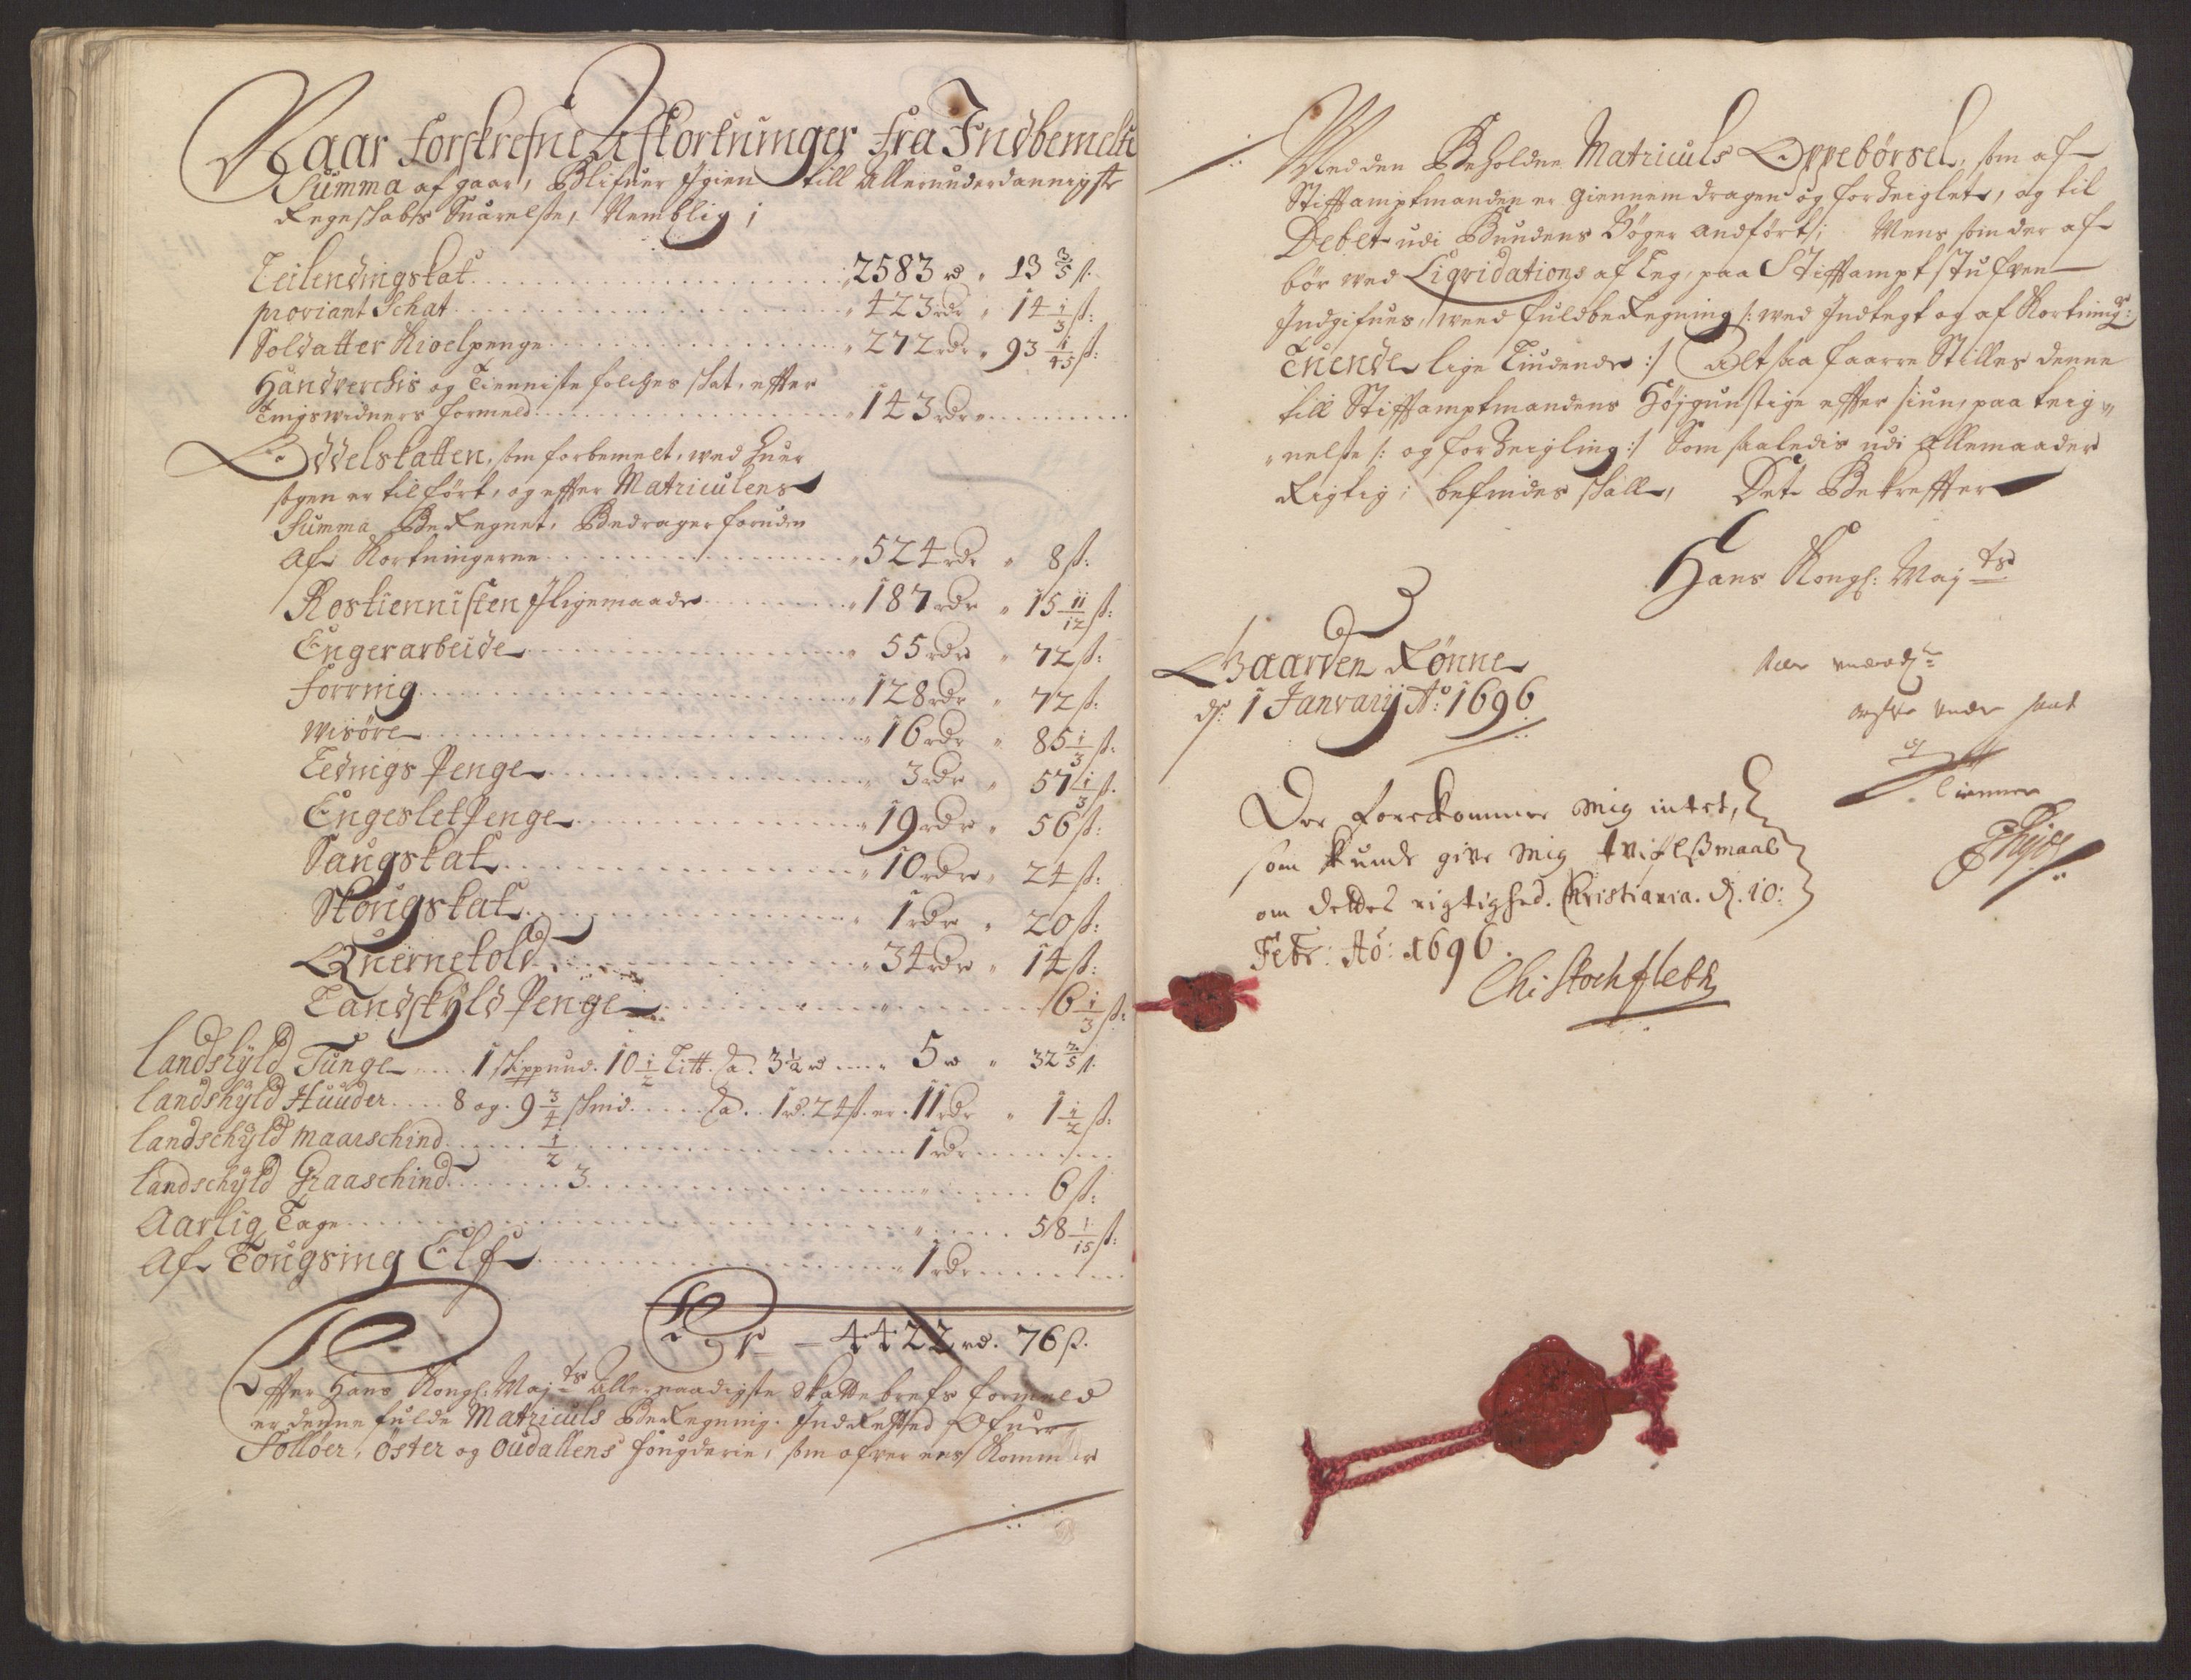 Naar forskrefne Afkortninger fra Indbemelte
Summa af gaar, Blifuer Igien till Allerunderdannigste
Regenskabs Suarelse, Nemblig;
Leilendingskat 2583 rd " 13 3/5 s:
proviant Schat 423 rdr " 14 1/3 s:
Soldatter Kioelpenge 272 rdr " 93 4/45 s:
Handverchs og Tienniste folches skat, effter
Tingswidners formeld 143 rdr
Oddelskatten, som forbemelt, wed huer
sogen er tilført, og effter Matriculens
Summa Beregnet, Bedrager foruden
Af Kortningerne 524 rdr " 8 s:
Rostiennisten Iligemaade 187 rdr " 15 11/12 s:
Engerarbeide 55 rdr " 72 s:
Forring 128 rdr " 72 s:
Wisöre 16 rdr " 85 1/3 s:
Ledings Penge 3 rdr " 57 1/3 s:
Engeslet Penge 19 rdr " 56 s:
Saugskat 10 rdr " 24 s:
Skougskat 1 rdr " 20 s:
Quernetold 34 rdr " 14 s:
Landskyld Penge " 6 1/3 s:
Landskyld Tunge 1 skippund. 10 1/2 Litt. a. 3 1/2 rd " 5 rd " 32 2/5 s.
Landskyld Huuder 8 og. 9 3/4 skind a. 1 rd. 24 s. er. 11 rdr " 1 1/2 s:
Landschyld Maarschind 1/2 1 rdr
Landschyld Graaschind 3 " 6 s:
Aarlig Tage " 58 1/15 s:
Af Tougsing Elf 1 rdr
Er — 4422 rd. 76 s.
Effter Hans Kongl: Maj ts Allernaadigste Skatte brefs formeld
er denne fulde Matriculs Beregning. Indretted Ofuer
Solløer, Öster og Oudallens fougderie, som ofver ens Kommer
Med den Beholdne Matriculs Oppebörsel, som af
Stifftamptmanden er giennemdragen og forseiglet, og til
Debet udi Bundens Böger andført; Mens som der af
bör wed Liqvidations aflæg, paa Stifftamptstufven
Indgifues, weed fuldberegning /: wed Indtegt og af Kortning:
Tuende lige Liudende :/ Altsaa faarre Stilles denne
till Stifftamptmandens Höjgunstige effter siun, paa teig-
nelse /: og forseigling :/ Som saaledis udi Allemaader
Rigtig; befindes skall, Det Bekreffter
Hans Kongl: Maj ts
Gaarden Rønne
d: 1 Janvarij Ao: 1696
Der forekommer mig intet,
som kunde give mig tvifelsmaal
om dettes rigtighed. Christiania. d. 10:
Febr: Ao: 1696.
Chr Stockfleth